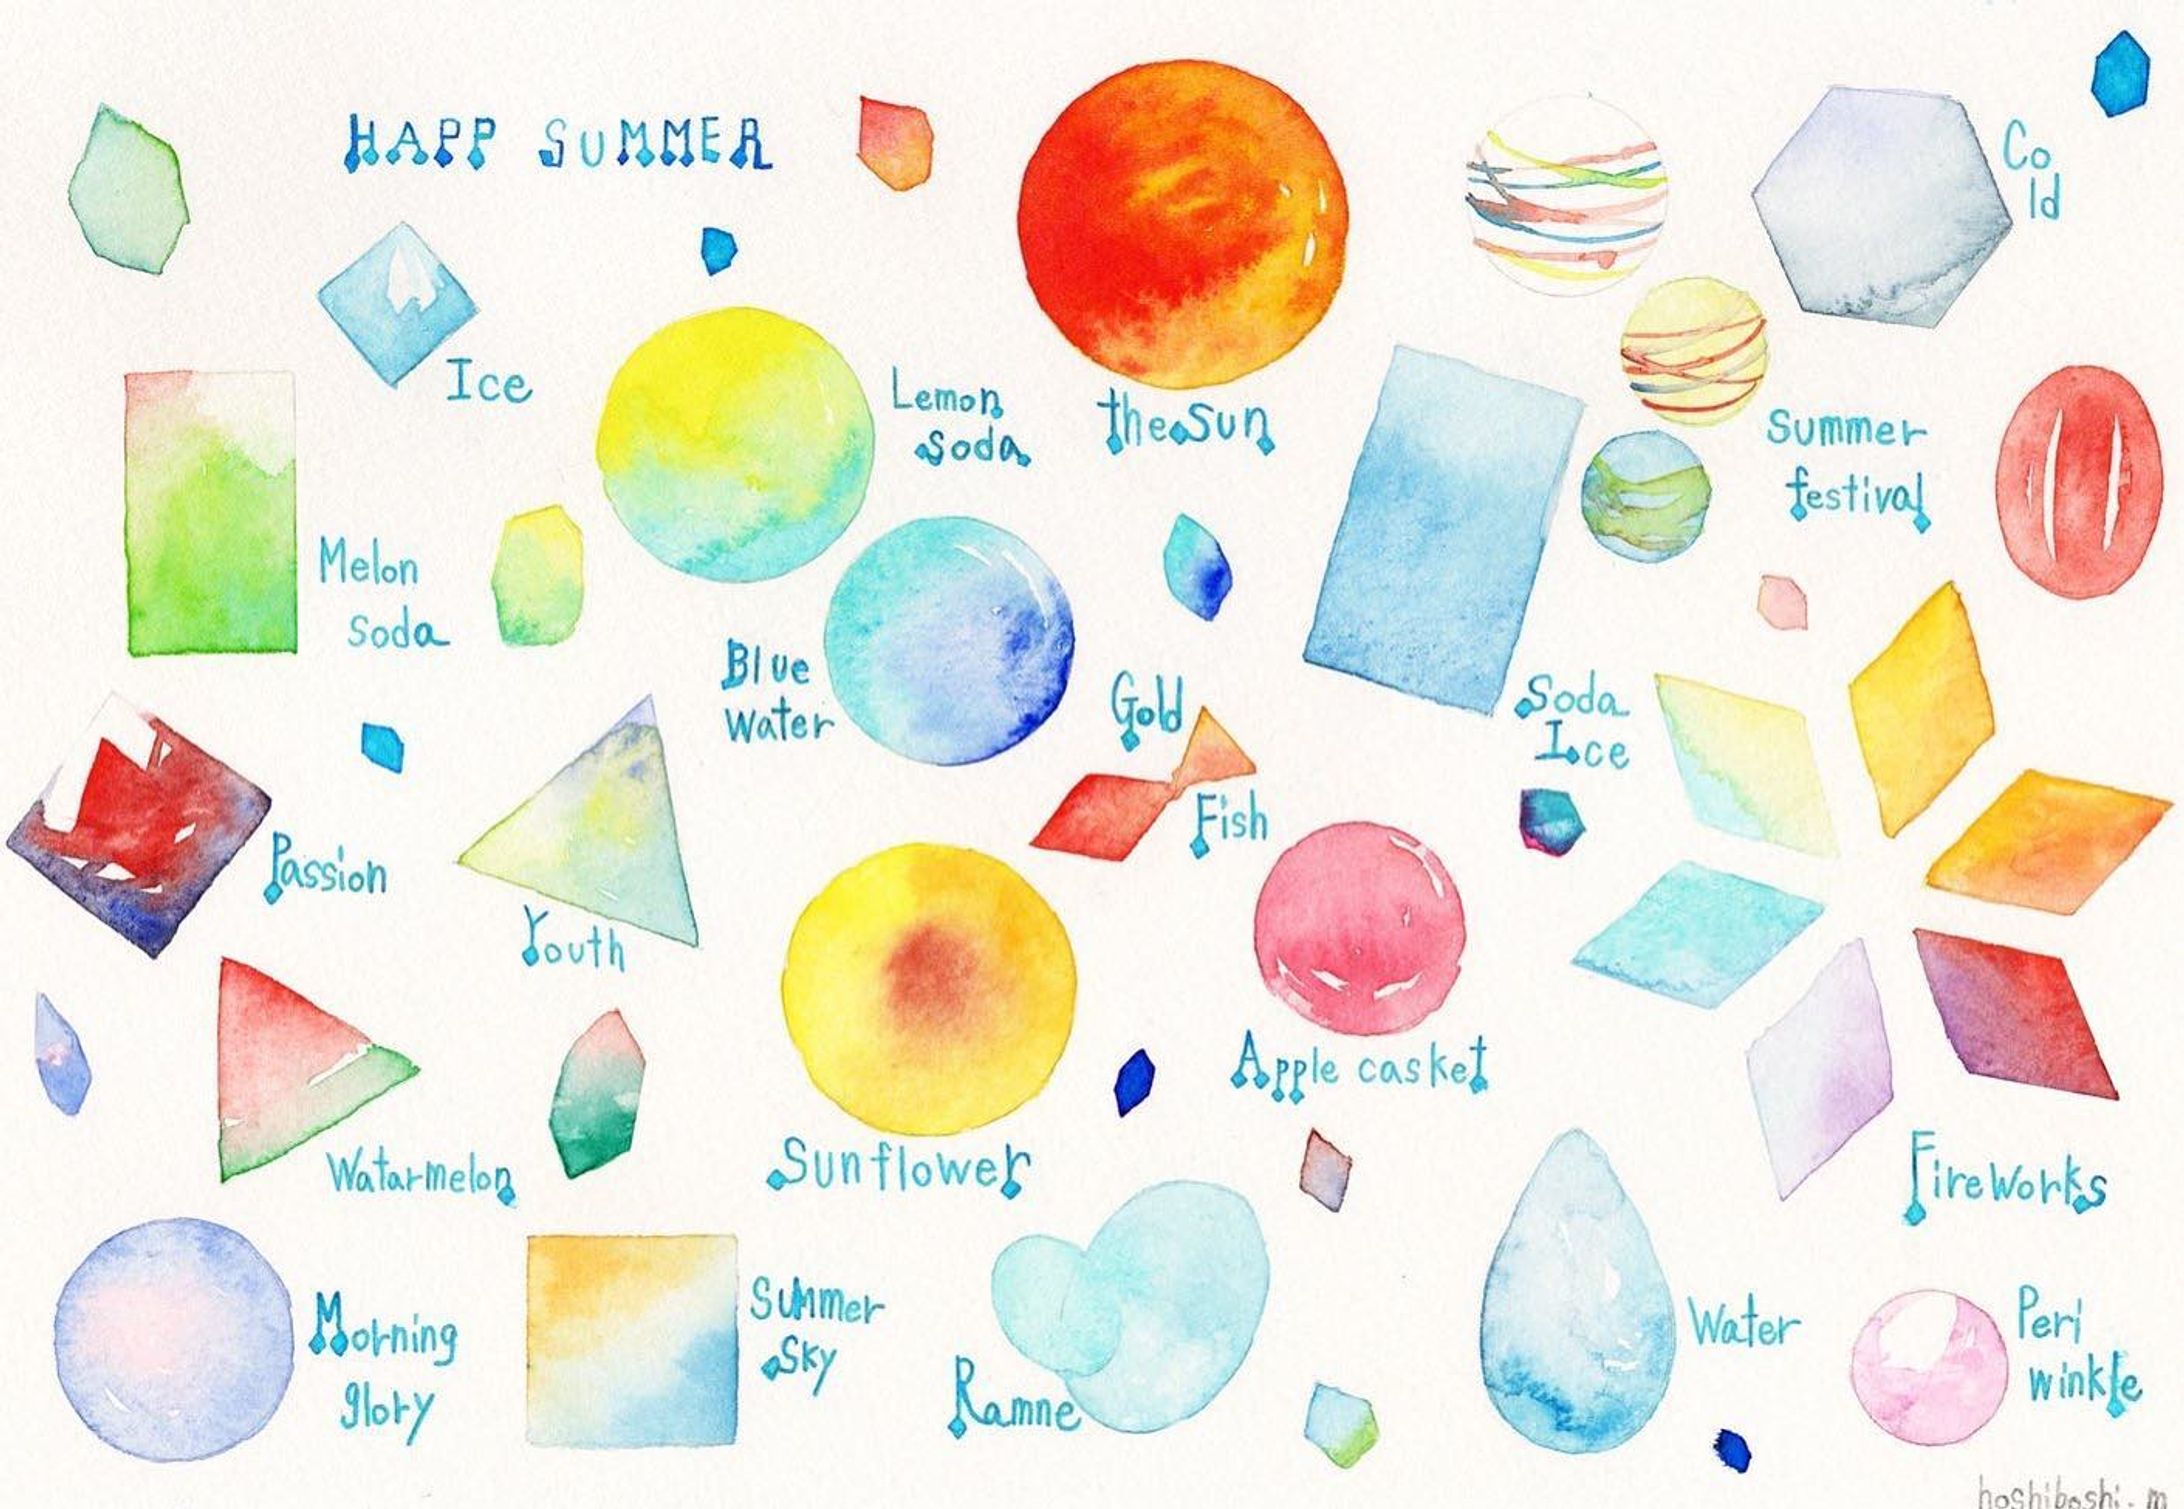 HAPP SUMMER
Co
ld
Ice
Lemon
Soda
the Sun
Summer
festival
Melon
Soda
Blue
Water
Gold
Fish
Soda
Ice
Passion
Youth
Apple casket
Watarmelon
Sunflower
Fireworks
Morning
glory
Summer
Sky
Ramne
Water
Peri
winkle
hoshiboshi.m